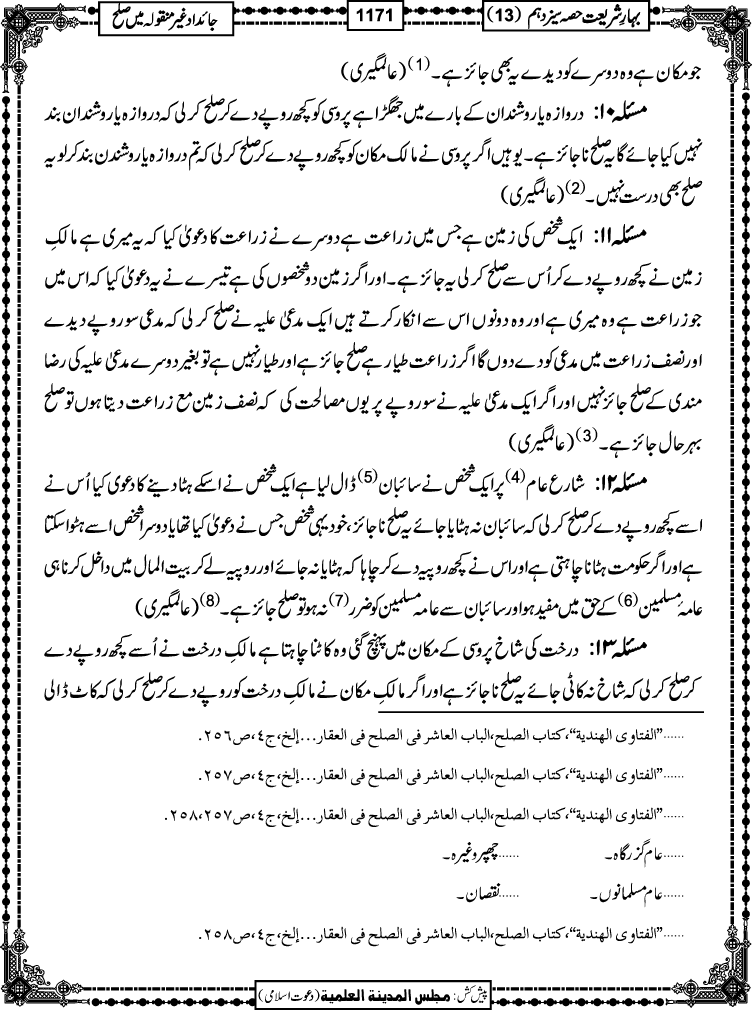 بہارِشریعت حصہ سیزدہم (13)
1171
جائداد غیر منقولہ میں صلح
جو مکان ہے وہ دوسرے کو دیدے یہ بھی جائز ہے۔(1) (عالمگیری)
مسئلہ ۱۰: دروازہ یا روشندان کے بارے میں جھگڑا ہے پروسی کو کچھ روپے دے کر صلح کر لی کہ دروازہ یا روشندان بند
نہیں کیا جائے گا یہ صلح ناجائز ہے۔ یوہیں اگر پروسی نے مالک مکان کو کچھ روپے دے کر صلح کر لی کہ تم دروازہ یا روشندن بند کر لو یہ
صلح بھی درست نہیں۔(2) (عالمگیری)
مسئلہ ۱۱: ایک شخص کی زمین ہے جس میں زراعت ہے دوسرے نے زراعت کا دعویٰ کیا کہ یہ میری ہے مالکِ
زمین نے کچھ روپے دے کر اُس سے صلح کر لی یہ جائز ہے۔ اور اگر زمین دو شخصوں کی ہے تیسرے نے یہ دعویٰ کیا کہ اس میں
جو زراعت ہے وہ میری ہے اور وہ دونوں اس سے انکار کرتے ہیں ایک مدعیٰ علیہ نے صلح کر لی کہ مدعی سو روپے دیدے
اور نصف زراعت میں مدعی کو دے دوں گا اگر زراعت طیار ہے صلح جائز ہے اور طیار نہیں ہے تو بغیر دوسرے مدعیٰ علیہ کی رضا
مندی کے صلح جائز نہیں اور اگر ایک مدعیٰ علیہ نے سو روپے پر یوں مصالحت کی کہ نصف زمین مع زراعت دیتا ہوں تو صلح
بہر حال جائز ہے۔(3) (عالمگیری)
مسئلہ ۱۲: شارع عام(4) پر ایک شخص نے سائبان(5) ڈال لیا ہے ایک شخص نے اسکے ہٹا دینے کا دعوی کیا اُس نے
اسے کچھ روپے دے کر صلح کر لی کہ سائبان نہ ہٹایا جائے یہ صلح ناجائز، خود یہی شخص جس نے دعویٰ کیا تھا یا دوسرا شخص اسے ہٹوا سکتا
ہے اور اگر حکومت ہٹانا چاہتی ہے اور اس نے کچھ روپیہ دے کر چاہا کہ ہٹایا نہ جائے اور روپیہ لے کر بیت المال میں داخل کرنا ہی
عامۂ مسلمین(6) کے حق میں مفید ہو اور سائبان سے عامہ مسلمین کو ضرر(7) نہ ہو تو صلح جائز ہے۔(8) (عالمگیری)
مسئلہ ۱۳: درخت کی شاخ پروسی کے مکان میں پہنچ گئی وہ کاٹنا چاہتا ہے مالکِ درخت نے اُسے کچھ روپے دے
کر صلح کر لی کہ شاخ نہ کاٹی جائے یہ صلح ناجائز ہے اور اگر مالکِ مکان نے مالکِ درخت کو روپے دے کر صلح کر لی کہ کاٹ ڈالی
......"الفتاوى الهندية"، كتاب الصلح، الباب العاشر فى الصلح فى العقار...إلخ، ج٤، ص٢٥٦.
......"الفتاوى الهندية"، كتاب الصلح، الباب العاشر فى الصلح فى العقار...إلخ، ج٤، ص٢٥٧.
......"الفتاوى الهندية"، كتاب الصلح، الباب العاشر فى الصلح فى العقار...إلخ، ج٤، ص٢٥٧، ٢٥٨.
......عام گزرگاہ۔ ......چھپر وغیرہ۔
......عام مسلمانوں۔ ......نقصان۔
......"الفتاوى الهندية"، كتاب الصلح، الباب العاشر فى الصلح فى العقار...إلخ، ج٤، ص٢٥٨.
پیش کش: مجلس المدینة العلمیة (دعوت اسلامی)